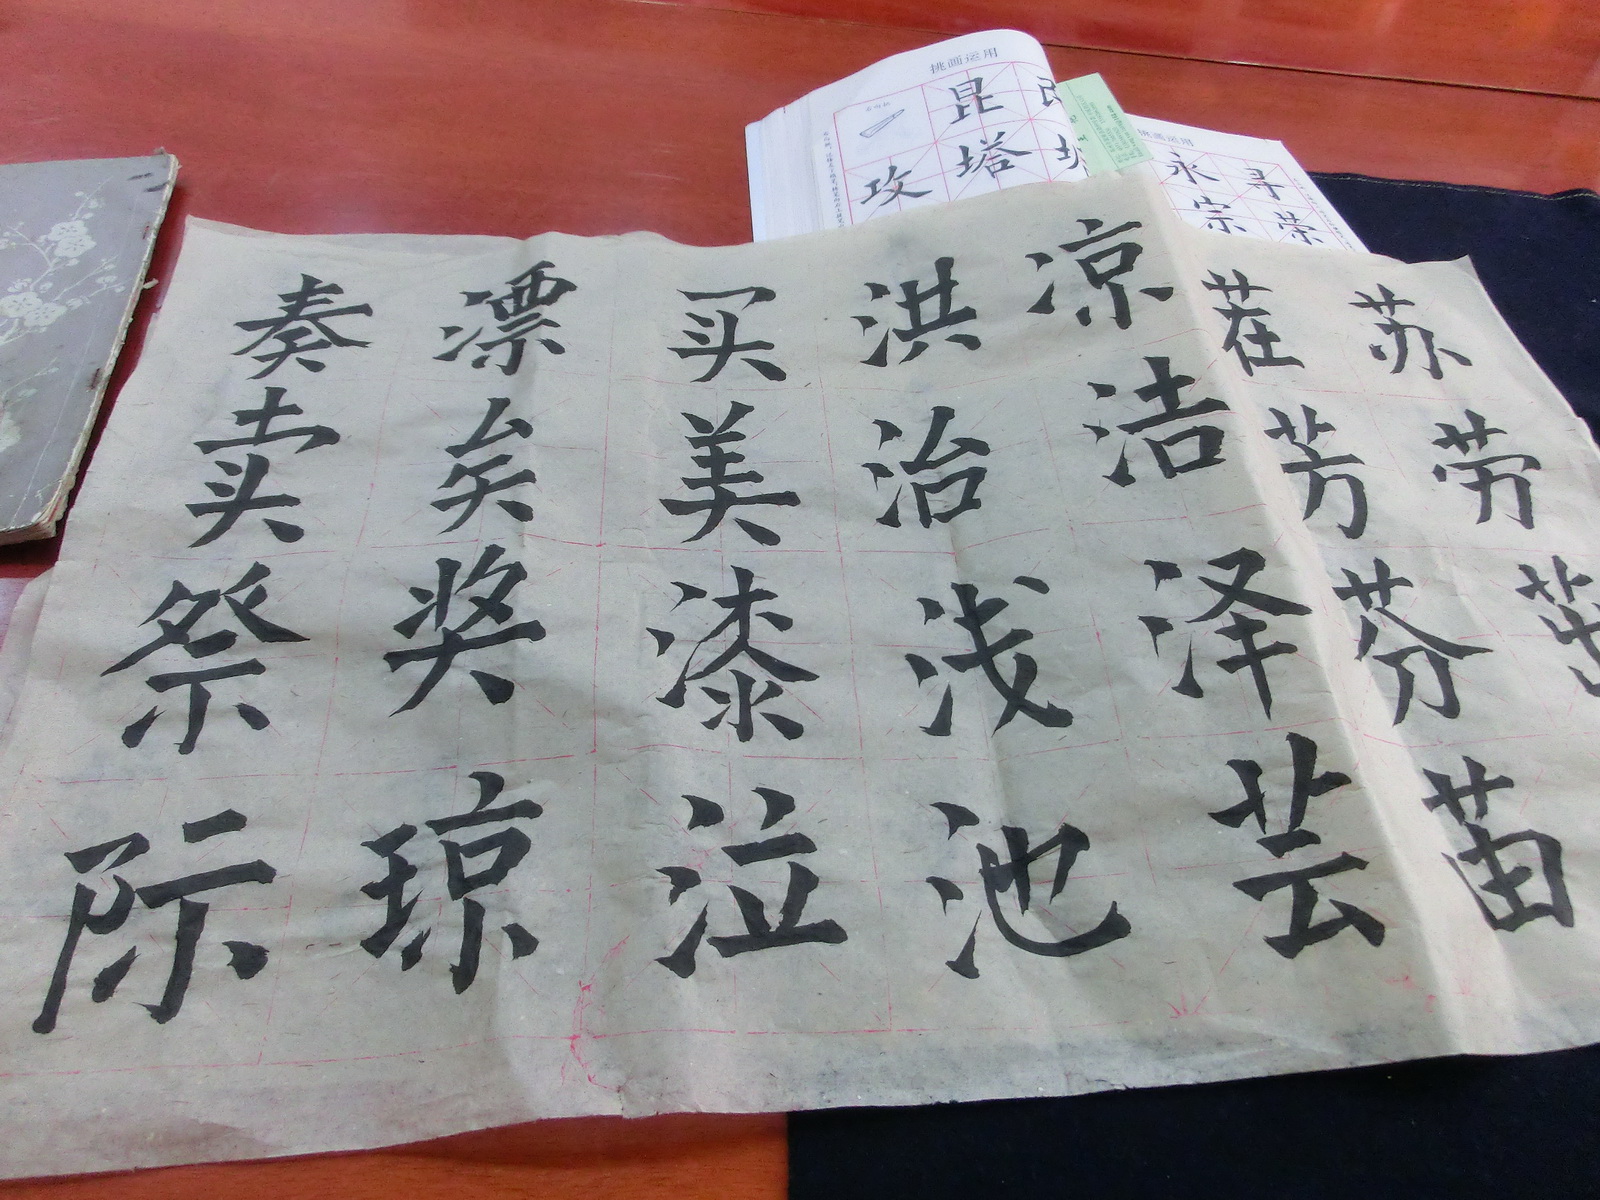 挑画运用
昆
攻 塔
挑画运用
永 寻
宗 荣
奏卖祭际
漂矣奖琼
买美漆泣
洪治浅池
凉洁泽芸
茬芳芬苗
苏劳茁